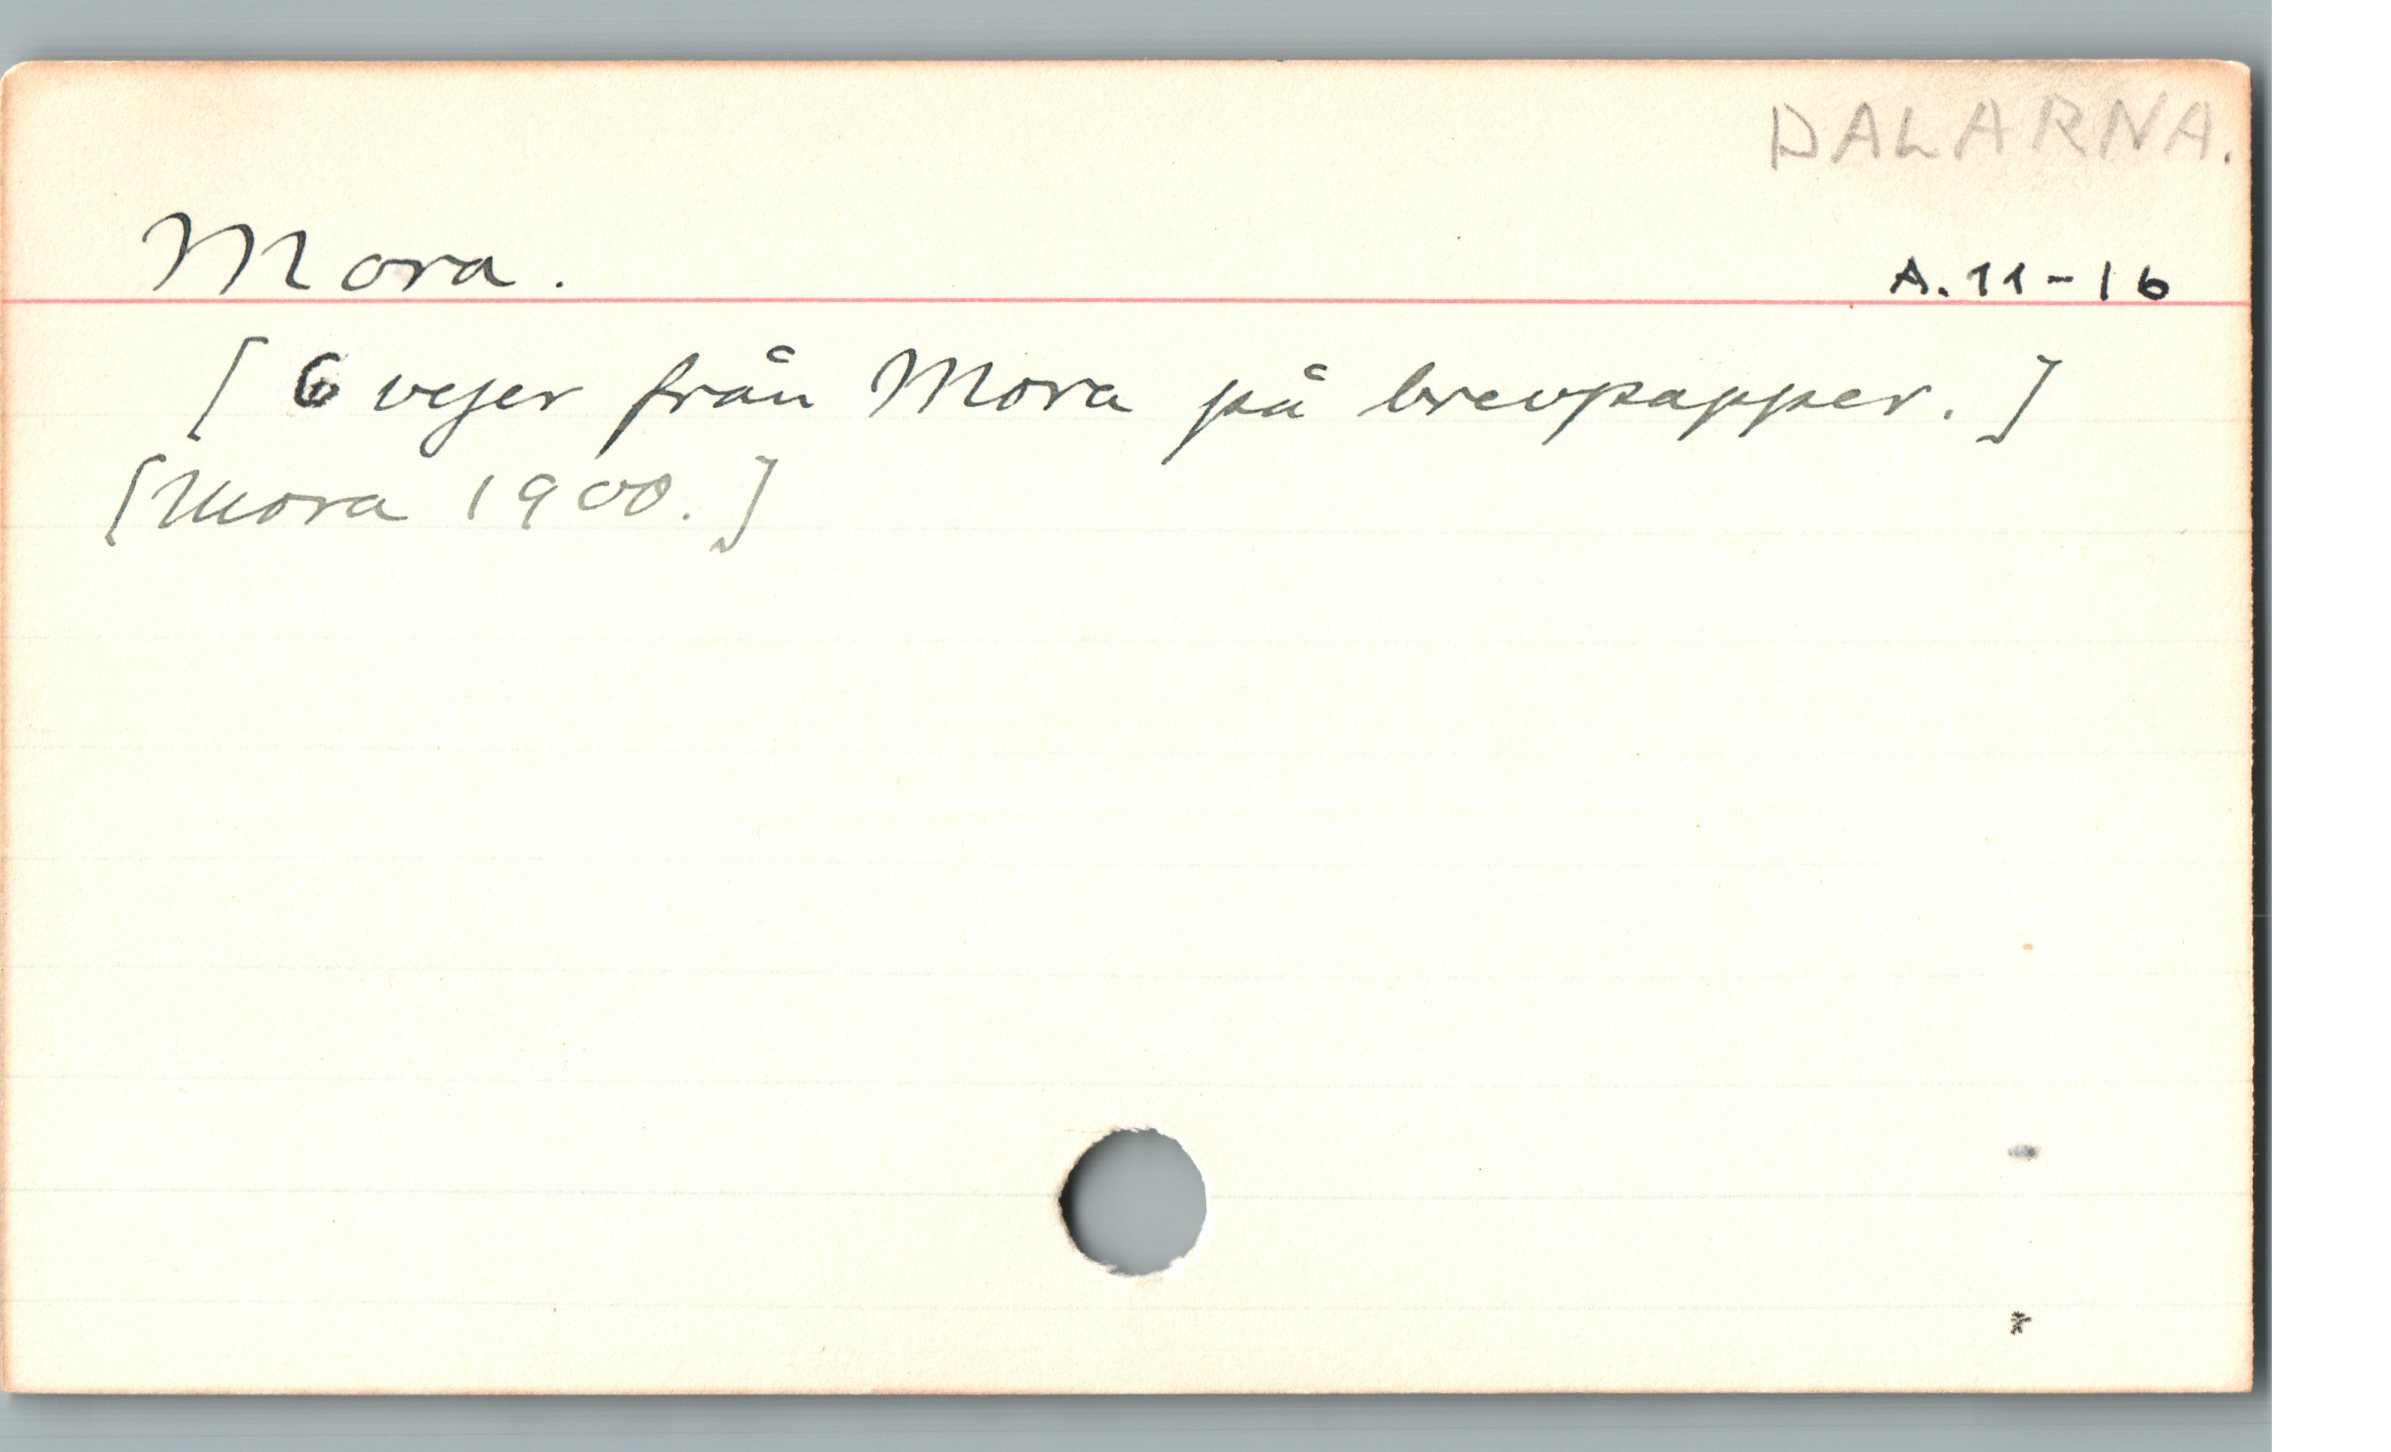 DALARNA.
Mora.
A. 11-16
[ 6 vyer från Mora på brevpapper. ]
[Mora 1900. ]
*